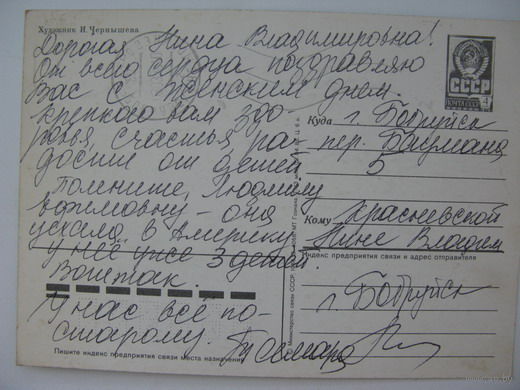 Художник И. Чернышева
Дорогая Нина Владимировна!
От всего сердца поздравляю
Вас с Женским днем.
Крепкого вам здо-
ровья, счастья, ра-
дости от детей
Помните, Людмилу
Ефимовну - она
уехала в Америку
у неё уже 3 детей.
Вот так.
У нас всё по-
старому. Тамара
Пишите индекс предприятия связи места назначения
СССР
ПОЧТА
4
Куда г. Бобруйск
пер. Баумана
5
Кому Красневской
Нине Владим
Индекс предприятия связи и адрес отправителя
г. Бобруйск
Министерство связи СССР